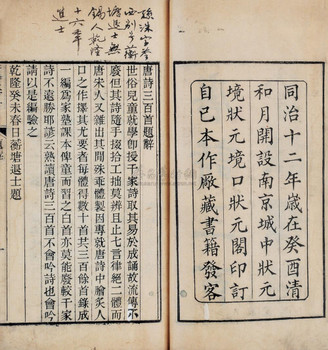 同治十二年歲在癸酉清
和月開設南京城中狀元
境狀元境口狀元閣印訂
自己本作廠藏書籍發客
孫洙字苓
西別号蘅
塘退士無
錫人乾隆
十六年
進士
唐詩三百首題辭
世俗兒童就學即授千家詩取其易於成誦故流傳不
廢但其詩隨手掇拾工拙莫辨且止七言律絕二體而
唐宋人又雜出其間殊乖體製因專就唐詩中膾炙人
口之作擇其尤要者每體得數十首共三百餘首錄成
一編為家塾課本俾童而習之白首亦莫能廢較千家
詩不遠勝耶諺云熟讀唐詩三百首不會吟詩也會吟
請以是編驗之
乾隆癸未春日蘅塘退士題